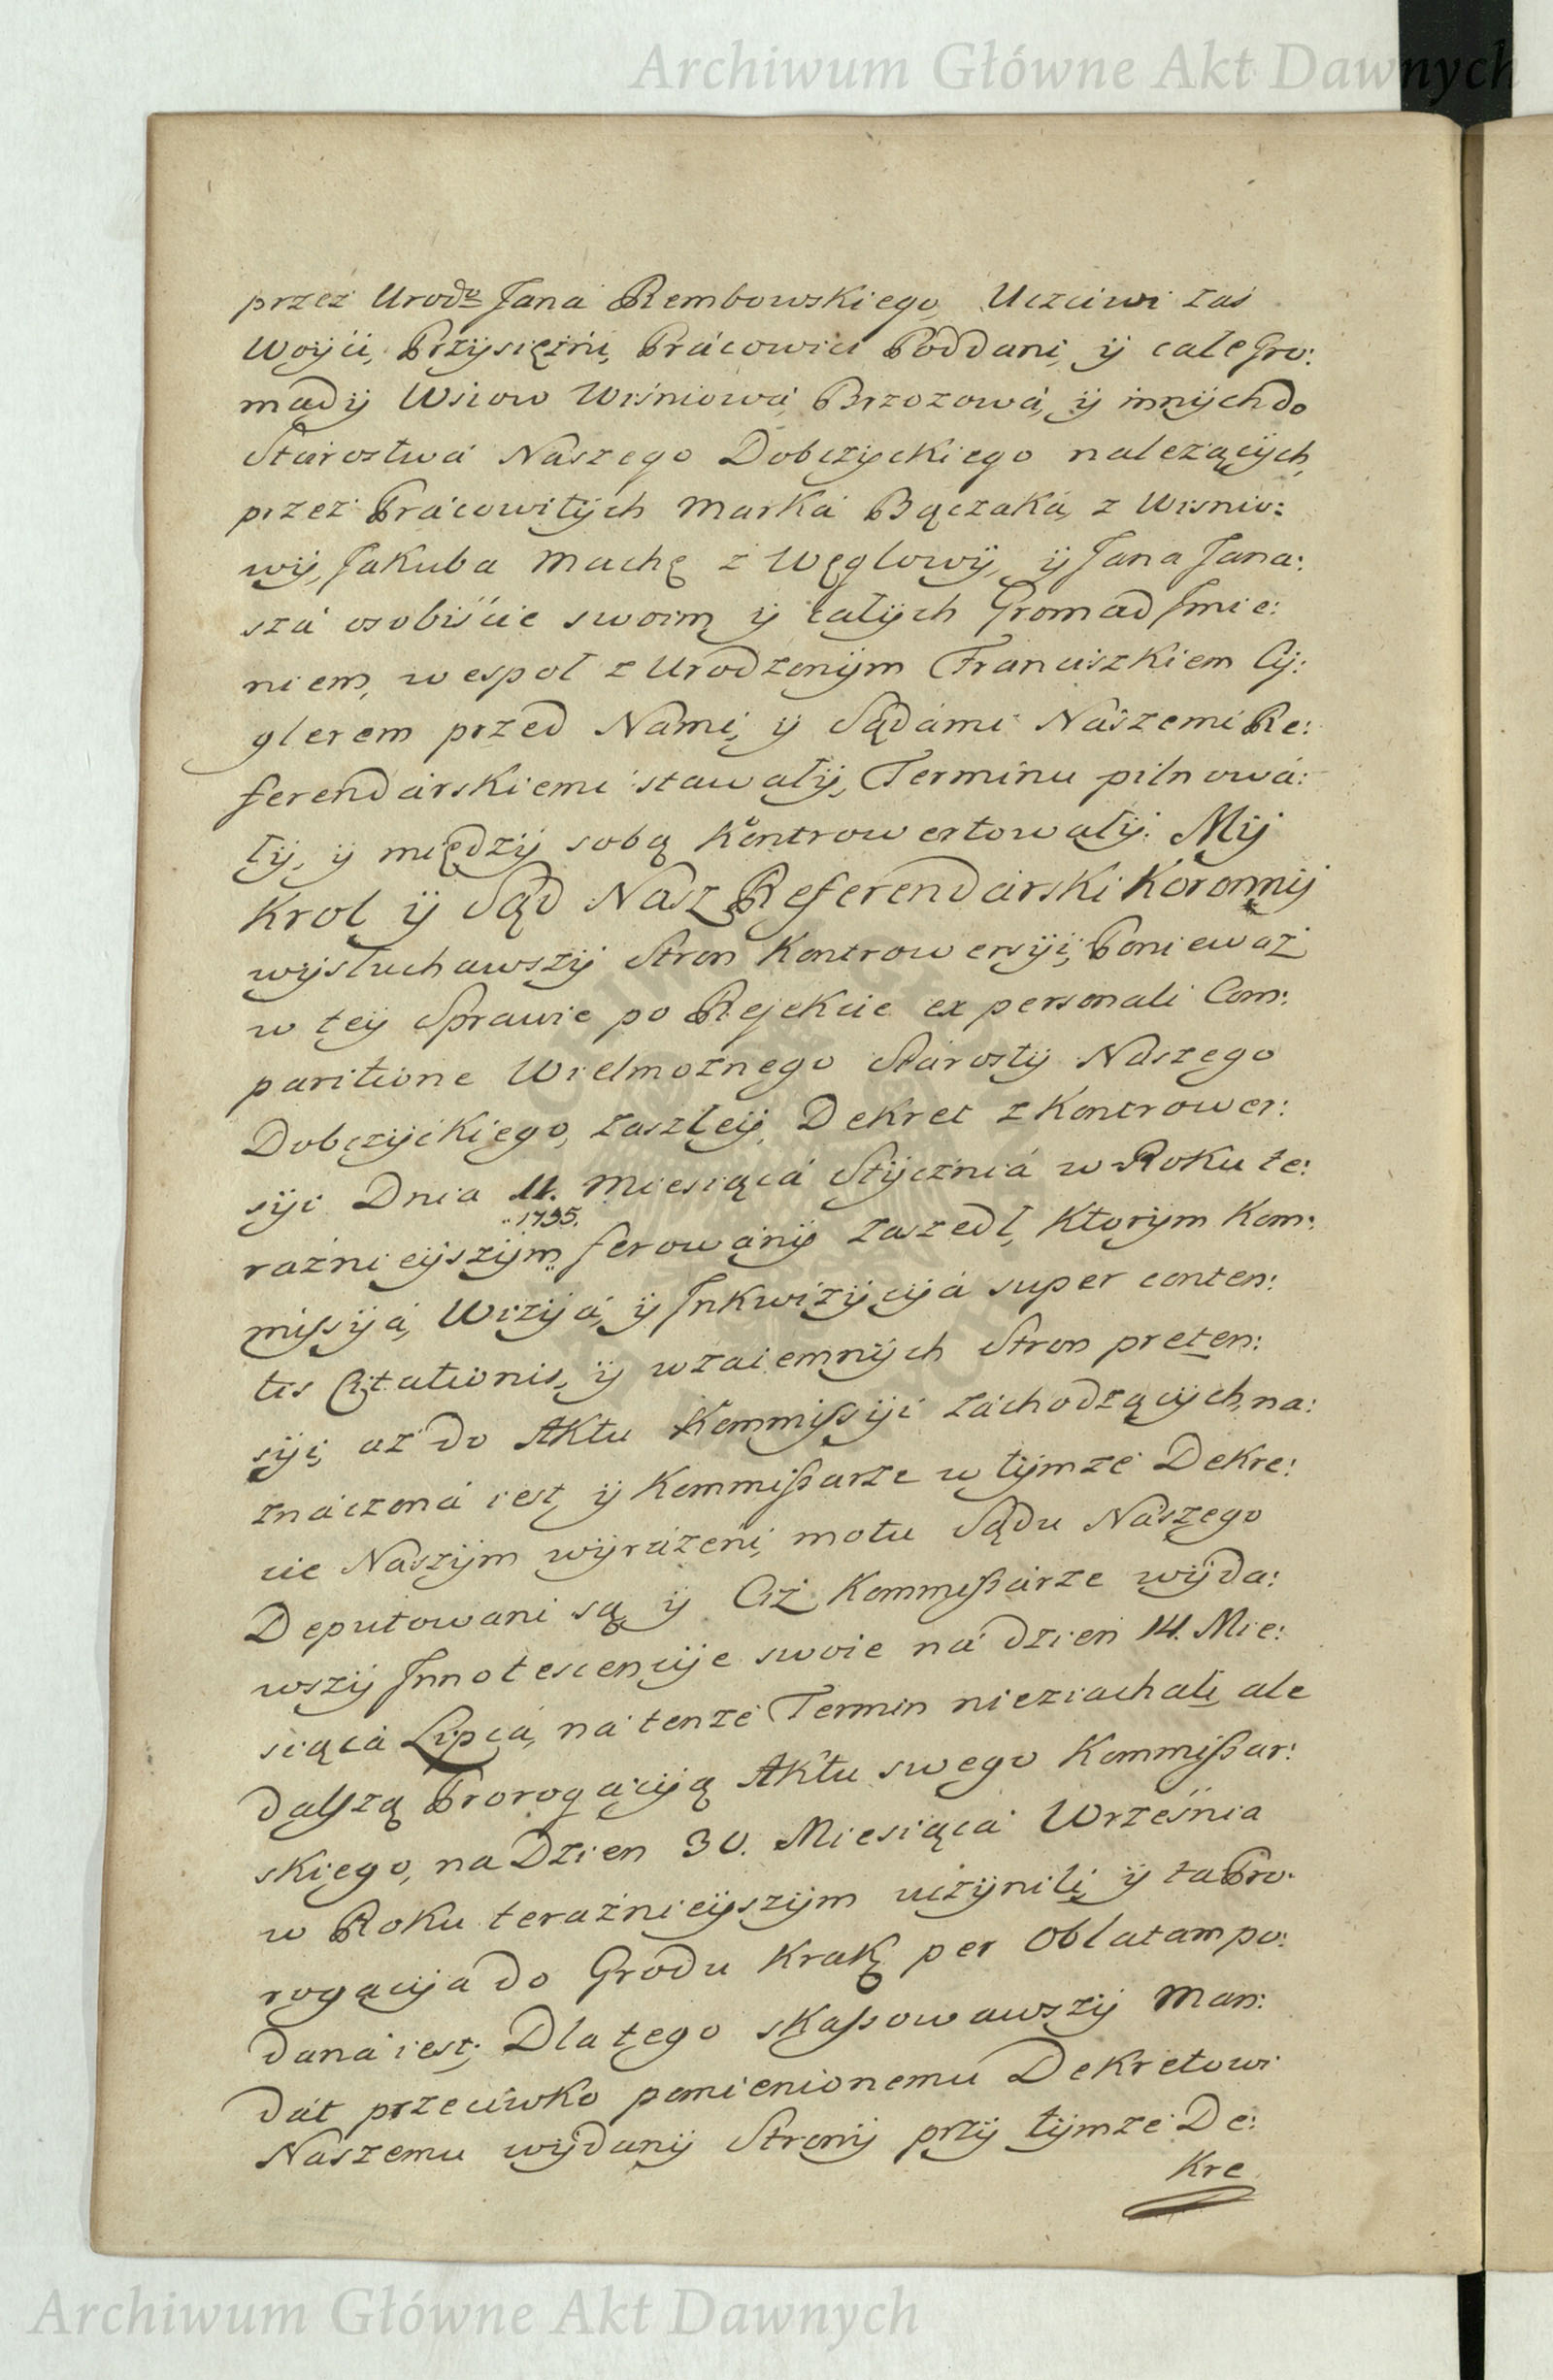 Archiwum Główne Akt Dawnych
przez Urodz Jana Rembowskiego, Uczciwi zaś
Woyći, Przysięźni, Prácowici Poddani, ÿ całe Gro:
madÿ Wsiow Wiśniowá, Brzozowá, ÿ innÿch do
Stárostwá Nászego Dobczÿckiego nalezącÿch,
przez Prácowitÿch Marká Bączaká, z Wisnio:
wÿ, Jakuba Machę z Węglowÿ, ÿ Jana Jana:
szá osobiście swoim ÿ całÿch Gromad Jmie:
niem, wespoł z Urodzonÿm Franciszkiem Cÿ:
glerem przed Nami, ÿ Sądámi Nászemi Re:
ferendárskiemi stawałÿ, Terminu pilnowá:
łÿ, ÿ międzÿ sobą kontrowertowałÿ. Mÿ
Krol ÿ Sąd Nasz Referendárski Koronnÿ
wÿsłuchawszÿ Stron Kontrowersÿi, Ponieważ
w teÿ Sprawie po Rejekcie ex personali Com:
paritione Wielmoznego Stárostÿ Nászego
Dobczÿckiego, zaszłeÿ, Dekret z Kontrower:
sÿi Dnia 11. Miesiącá Stÿczniá w Roku te:
1795.
raźnieÿszÿm ferowánÿ zaszedł, Ktorÿm Kom:
mißÿá, Wizÿá, ÿ Jnkwizÿcÿá super conten:
tis Citationis, ÿ wzaiemnÿch Stron preten:
sÿi, aż do Aktu Kommißÿi záchodzącÿch, na:
znáczoná iest, ÿ Kommißarze w tÿmze Dekre:
cie Naszÿm wÿráżeni, motu Sądu Nászego
Deputowani są, ÿ Ciż Kommißárze wÿda:
wszÿ Jnnotescencÿe swoie ná dzien 14. Mie:
siącá Lipcá, ná tenże Termin nieziachali, ale
dalszą Prorogácÿą Aktu swego Kommißar:
skiego, na Dzien 30. Miesiącá Września
w Roku teraźnieÿszÿm uczÿnili, ÿ ta Pro:
rogacÿa do Grodu Krakᵍ per Oblatam po:
daná iest; Dlatego skaßowawszÿ Man:
dat przeciwko pomienionemu Dekretowi
Nászemu wÿdanÿ Stronÿ przÿ tÿmze De:
Kre
Archiwum Główne Akt Dawnych